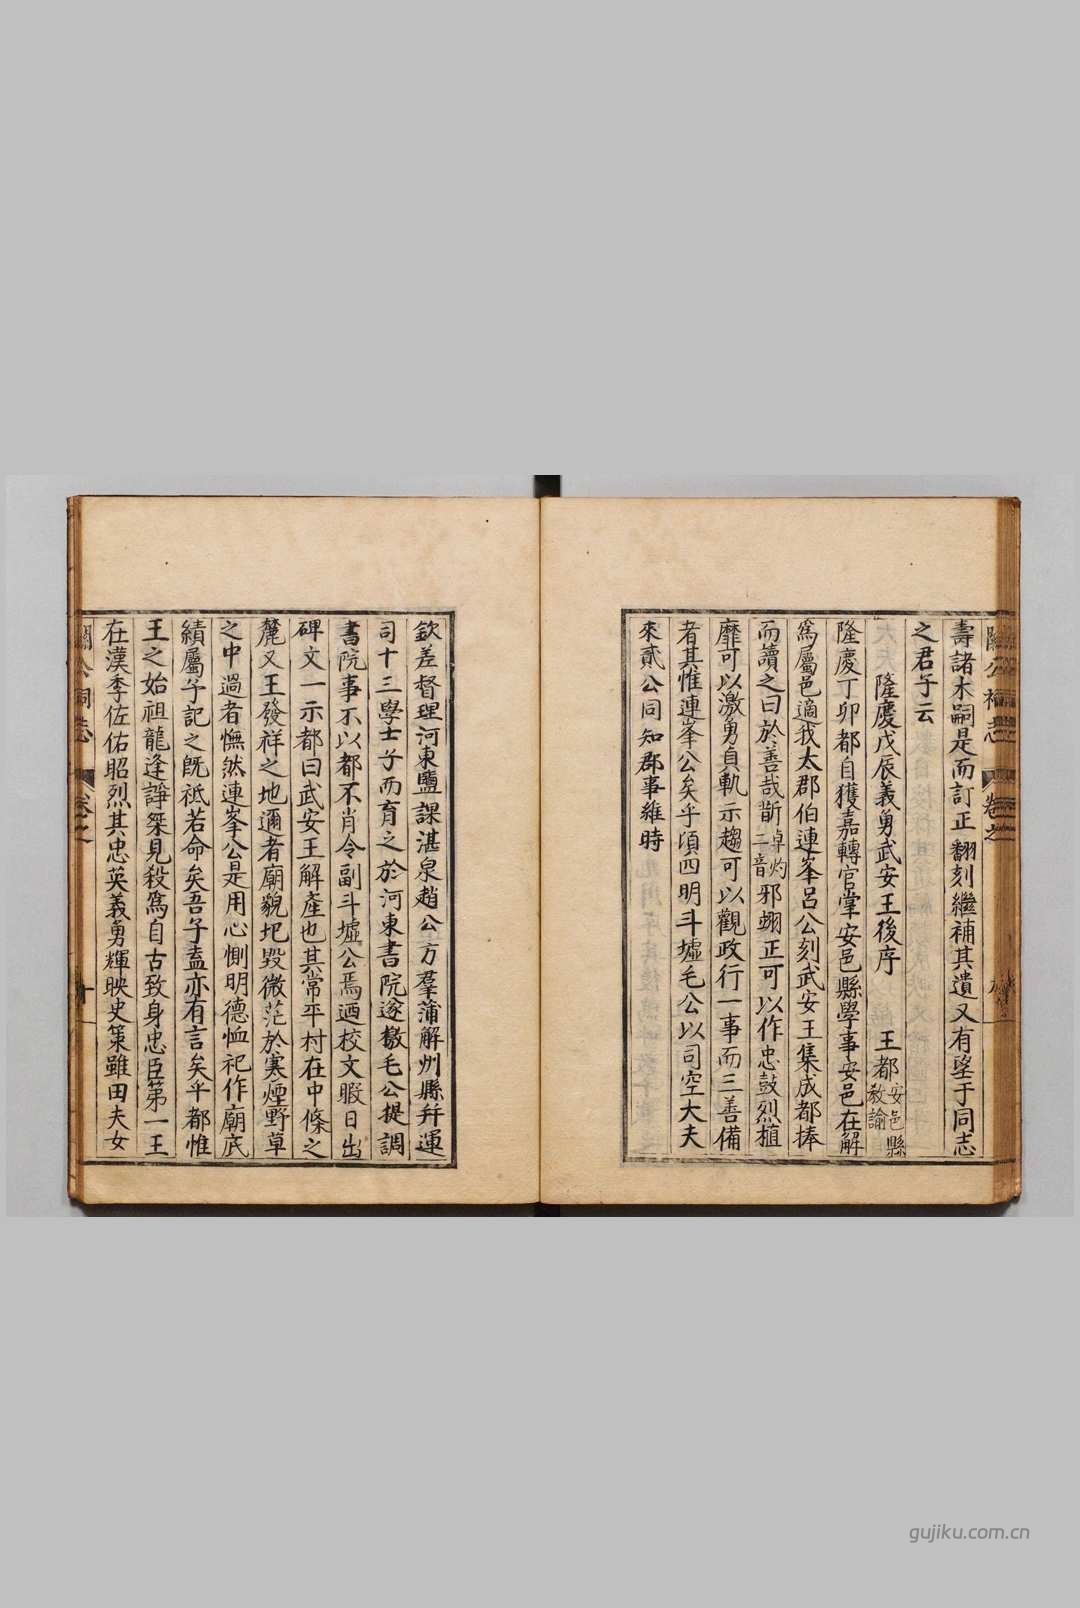 壽諸木嗣是而訂正翻刻繼補其遺又有望于同志
之君子云
隆慶戊辰義勇武安王後序 王都安邑縣教諭
隆慶丁卯都自獲嘉轉官掌安邑縣學事安邑在解
爲屬邑適我太郡伯連峯呂公刻武安王集成都捧
而讀之曰於善哉斮卓灼二音邪翊正可以作忠鼓烈植
靡可以激勇貞軌示趨可以觀政行一事而三善備
者其惟連峯公矣乎頃四明斗墟毛公以司空大夫
來貳公同知郡事維時
欽差督理河東鹽課湛泉趙公方羣蒲解州縣幷運
司十三學士子而育之於河東書院遂檄毛公提調
書院事不以都不肖令副斗墟公焉迺校文暇日出
碑文一示都曰武安王解產也其常平村在中條之
麓又王發祥之地邇者廟貌圮毀微茫於寒煙野草
之中過者憮然連峯公是用心惻明德恤祀作廟底
績屬予記之旣祗若命矣吾子盍亦有言矣乎都惟
王之始祖龍逢諍桀見殺爲自古致身忠臣第一王
在漢季佐佑昭烈其忠英義勇輝映史策雖田夫女
關公祠志 卷之 十
gujiku.com.cn